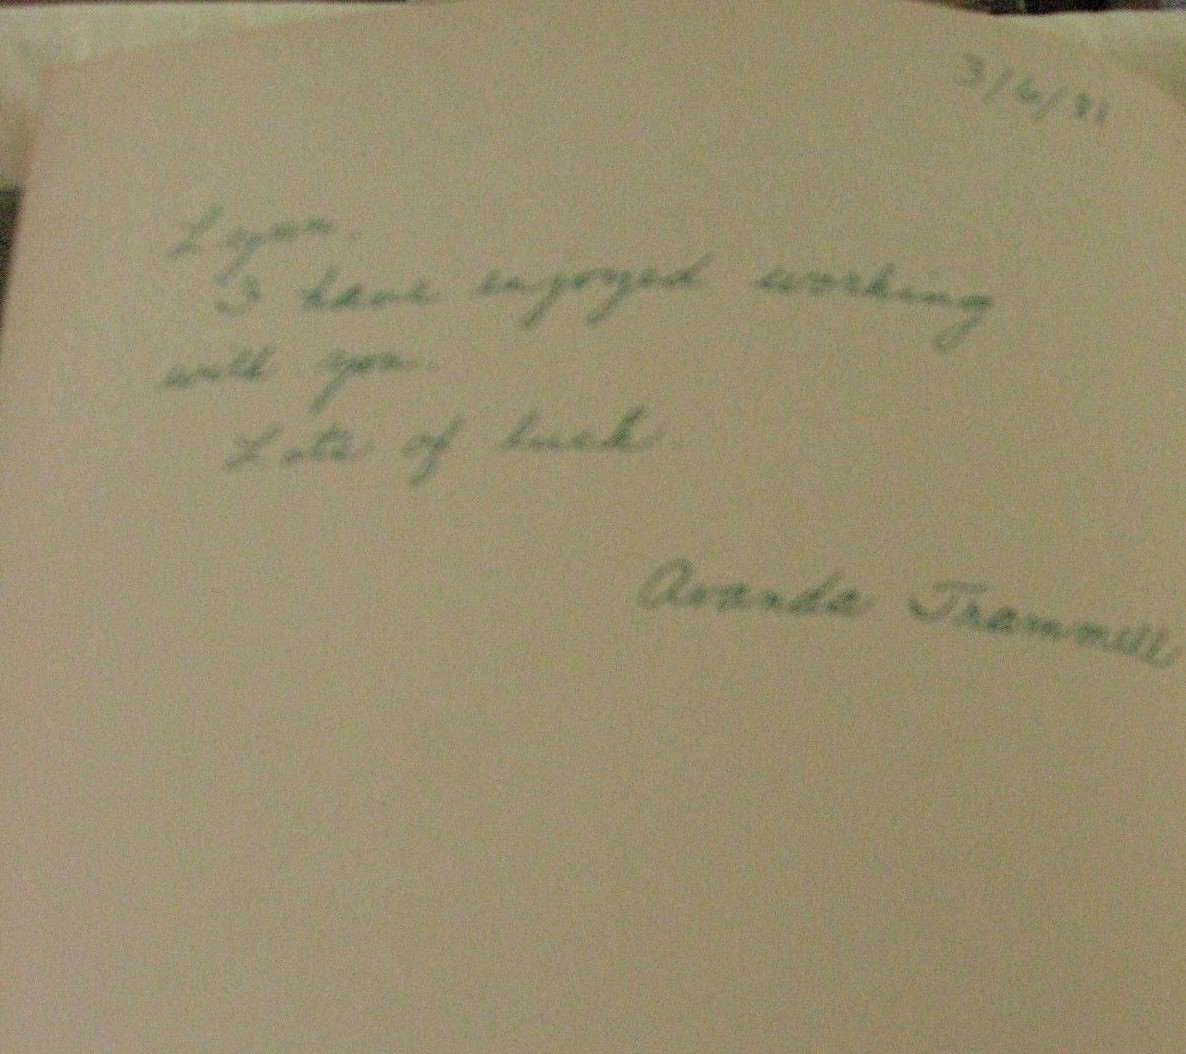 3/6/91
Lynn,
I have enjoyed working
with you.
Lots of luck.
Avanda Trammell